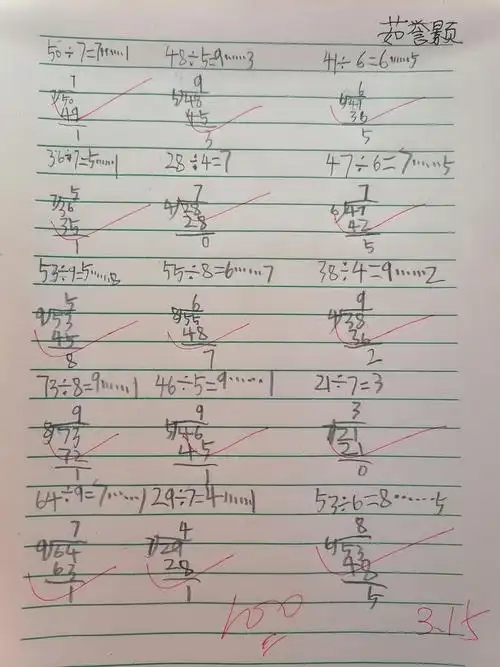 茹誉颢
50÷7=7……1 48÷5=9……3 41÷6=6……5
7 9 6
7√50 5√48 6√41
49 45 36
1 3 5
36÷7=5……1 28÷4=7 47÷6=7……5
5 7 7
7√36 4√28 6√47
35 28 42
1 0 5
53÷9=5……8 55÷8=6……7 38÷4=9……2
5 6 9
9√53 8√55 4√38
45 48 36
8 7 2
73÷8=9……1 46÷5=9……1 21÷7=3
9 9 3
8√73 5√46 7√21
72 45 21
1 1 0
64÷9=7……1 29÷7=4……1 53÷6=8……5
7 4 8
9√64 7√29 6√53
63 28 48
1 1 5
100 3.15